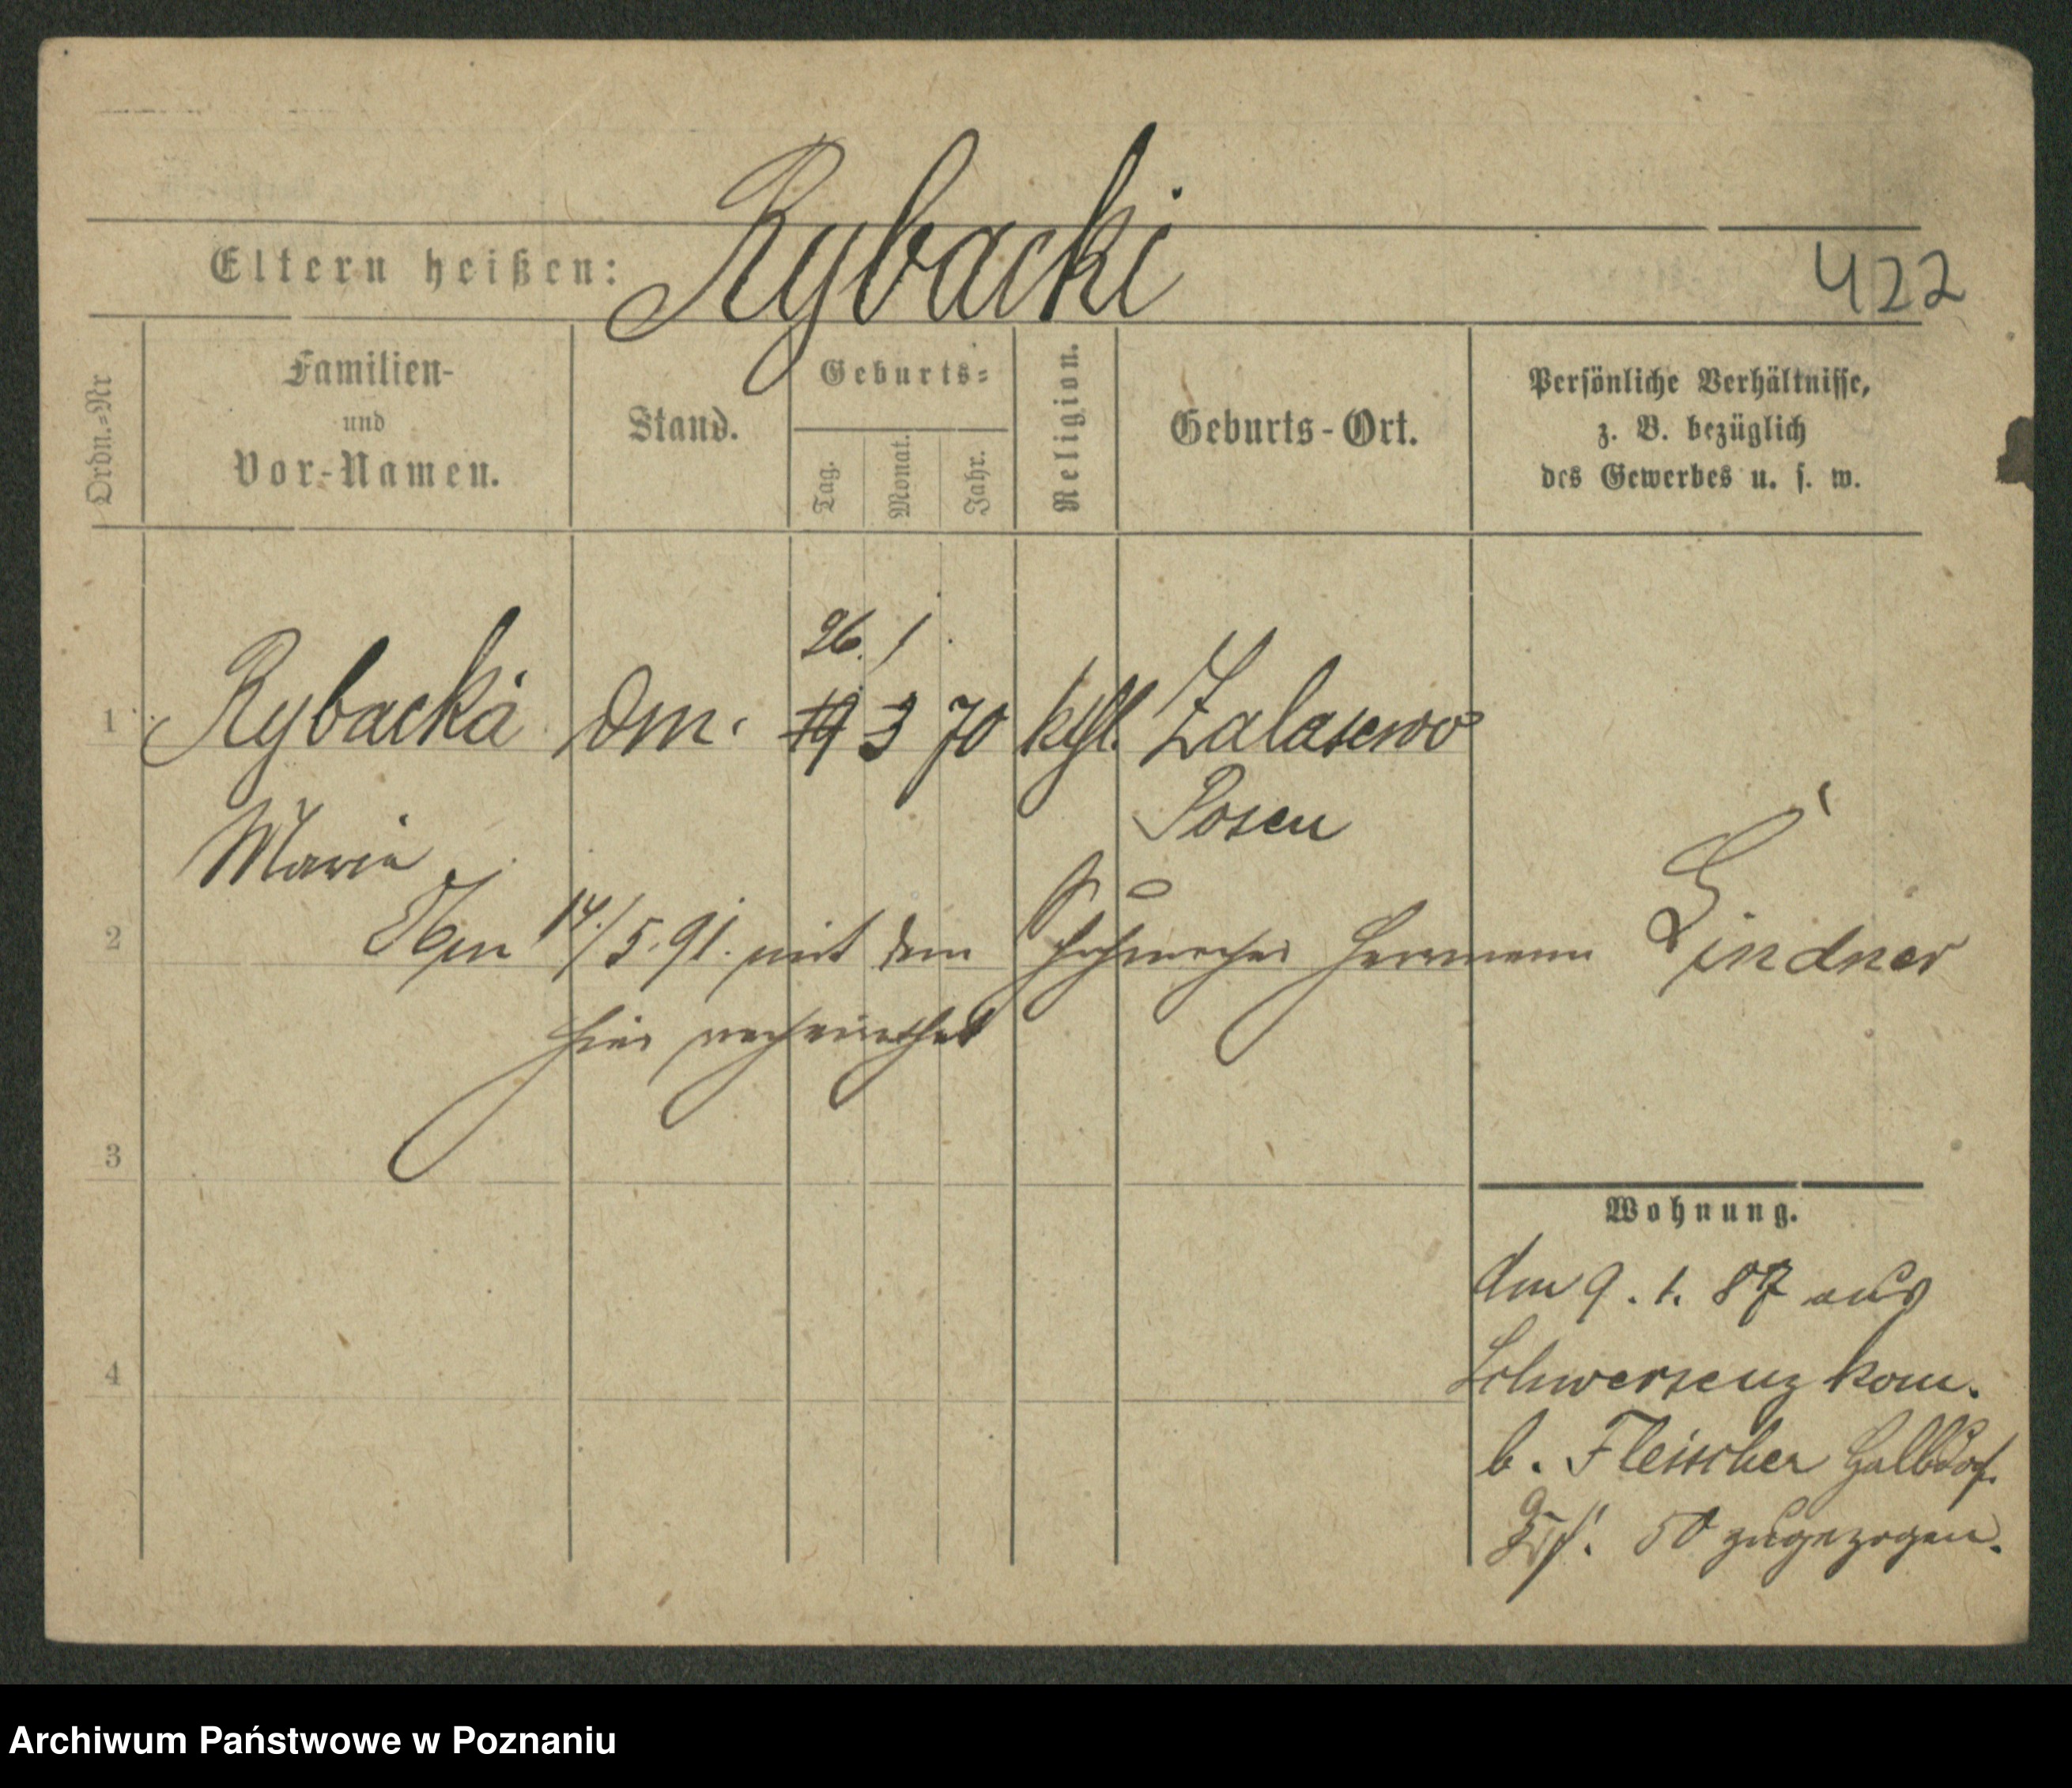 Eltern heißen: Rybacki 422
Ordn.=Nr
Familien-
und
Vor-Namen.
Stand.
Geburts=
Tag.
Monat.
Jahr.
Religion.
Geburts-Ort.
Persönliche Verhältnisse,
z. B. bezüglich
des Gewerbes u. s. w.
26. 1.
1 Rybacka 19 3 70 kthl. Zalasewo
Marie Posen
2 14./5.91. mit dem Schuhmacher Herrmann Lindner
hier verheirathet
3
Wohnung.
Am 9. 1. 87 aus
4 Schwersenz kom.
b. Fleischer
50 zugezogen.
Archiwum Państwowe w Poznaniu